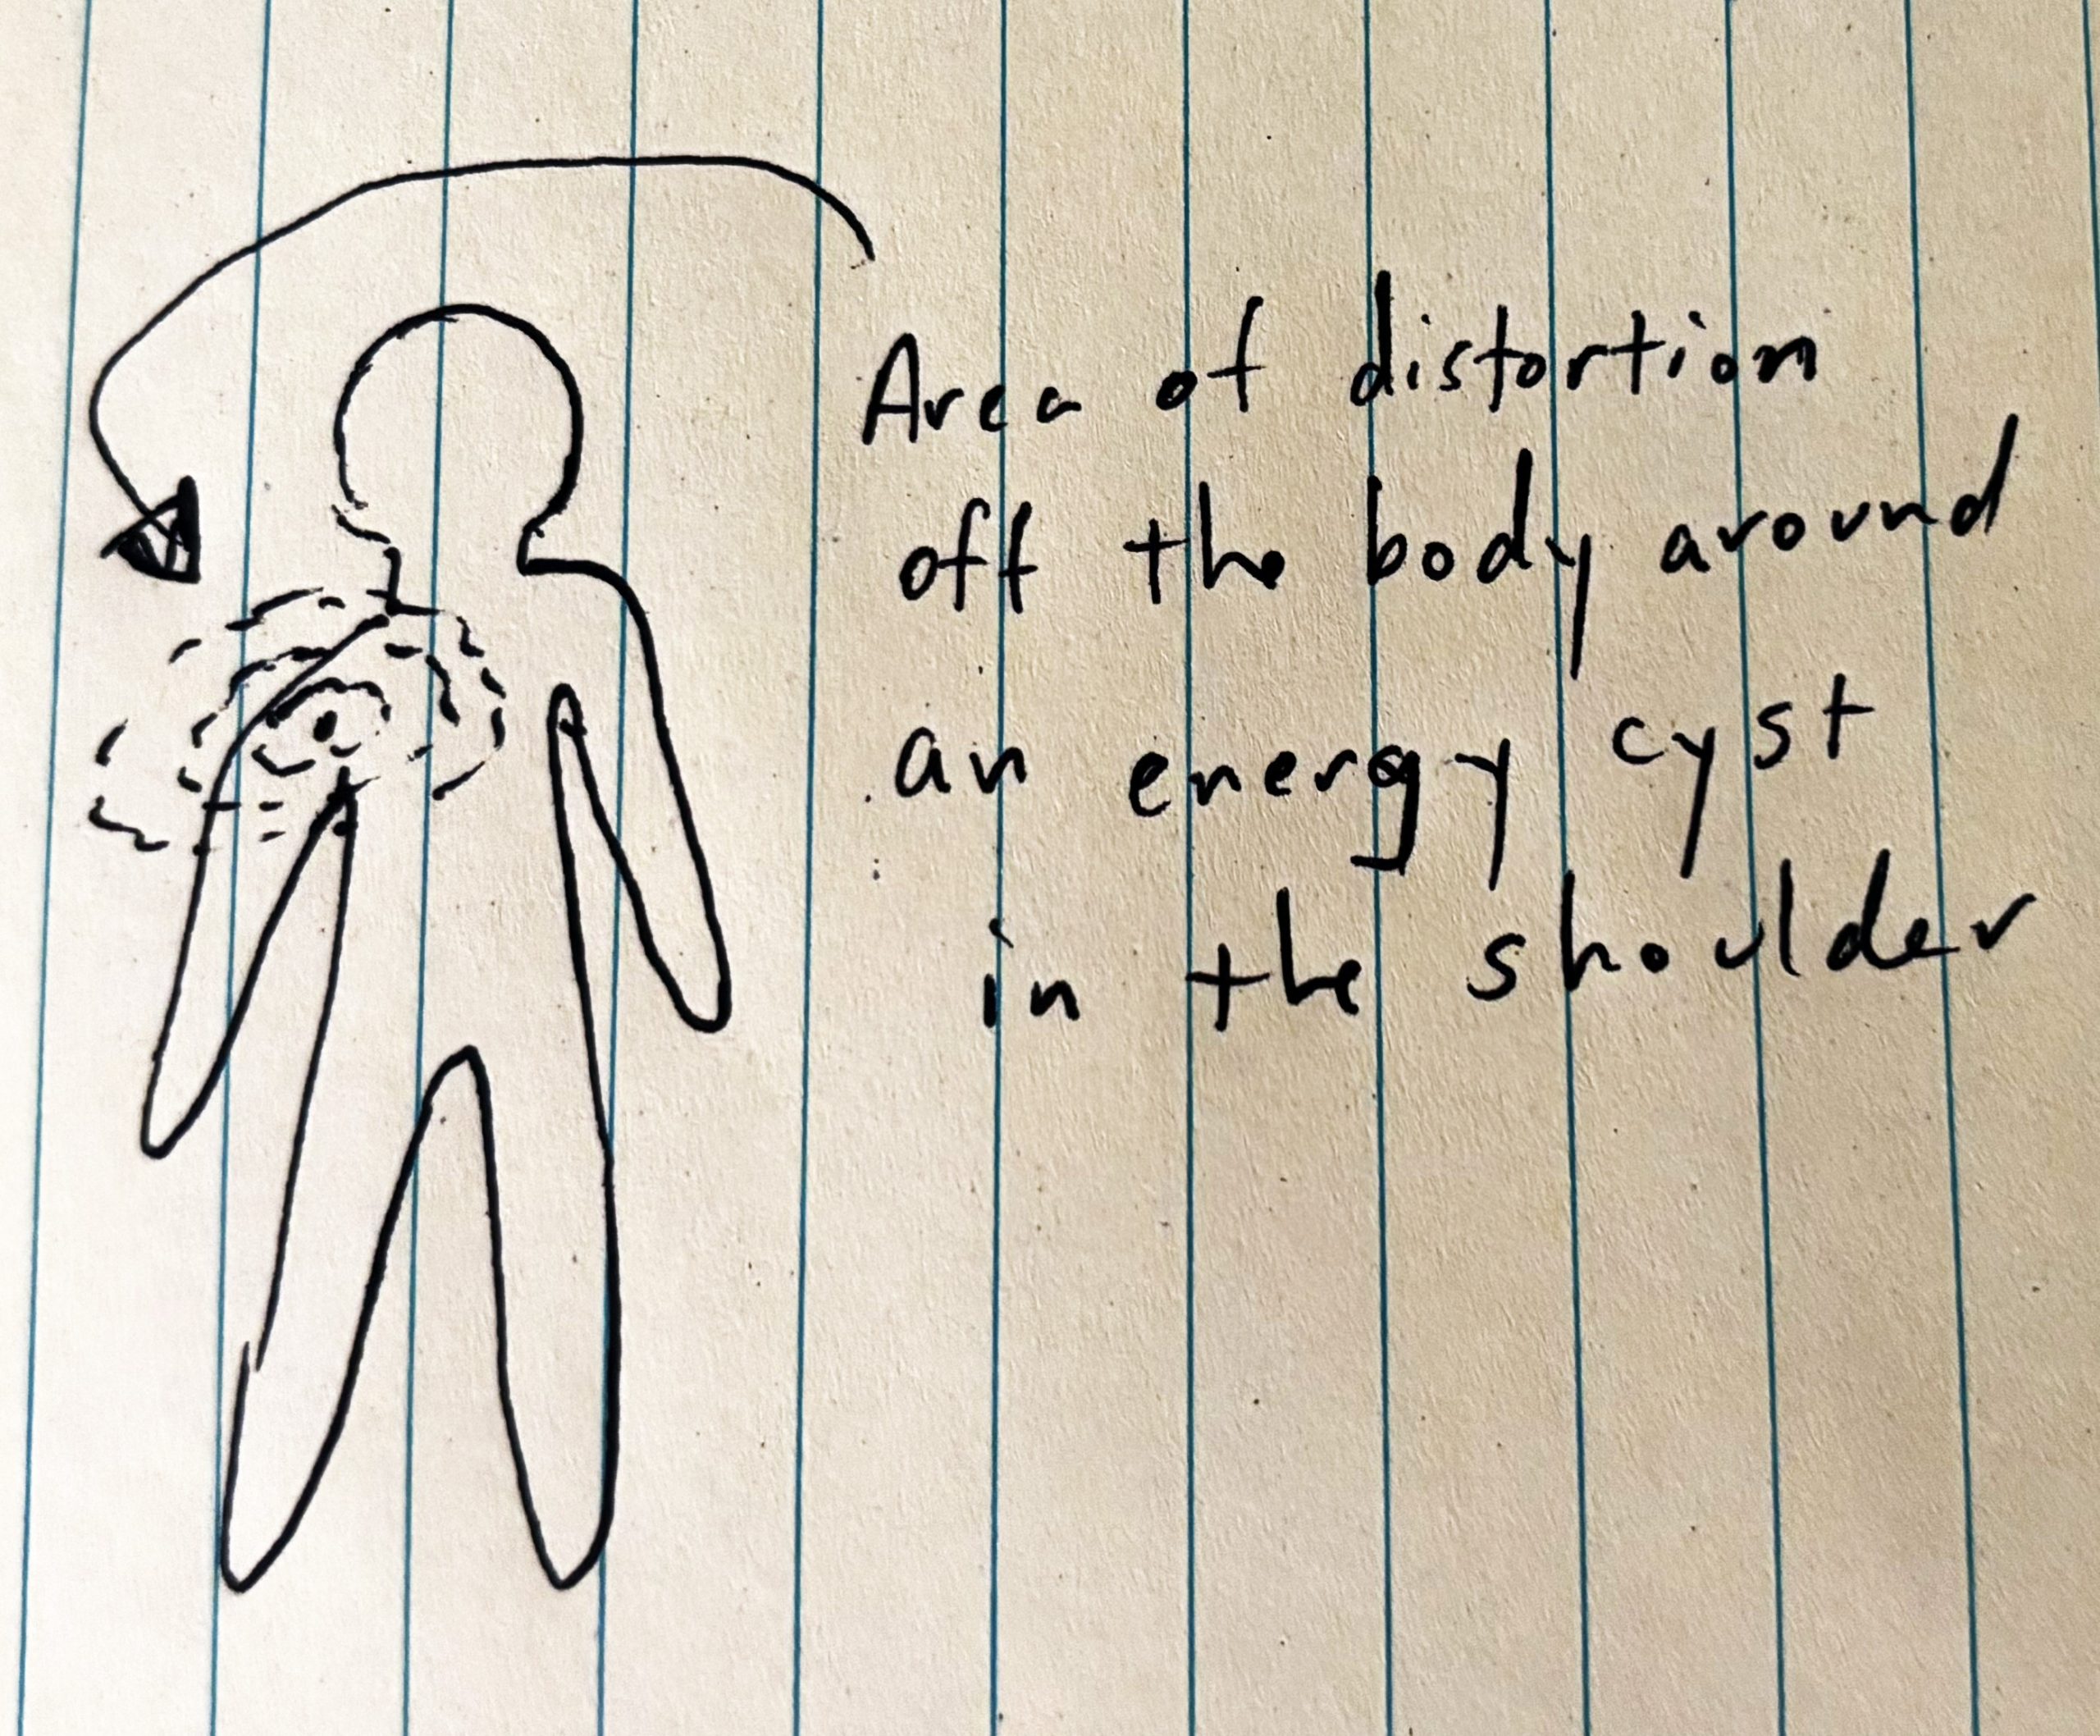 Area of distortion
off the body around
an energy cyst
in the shoulder